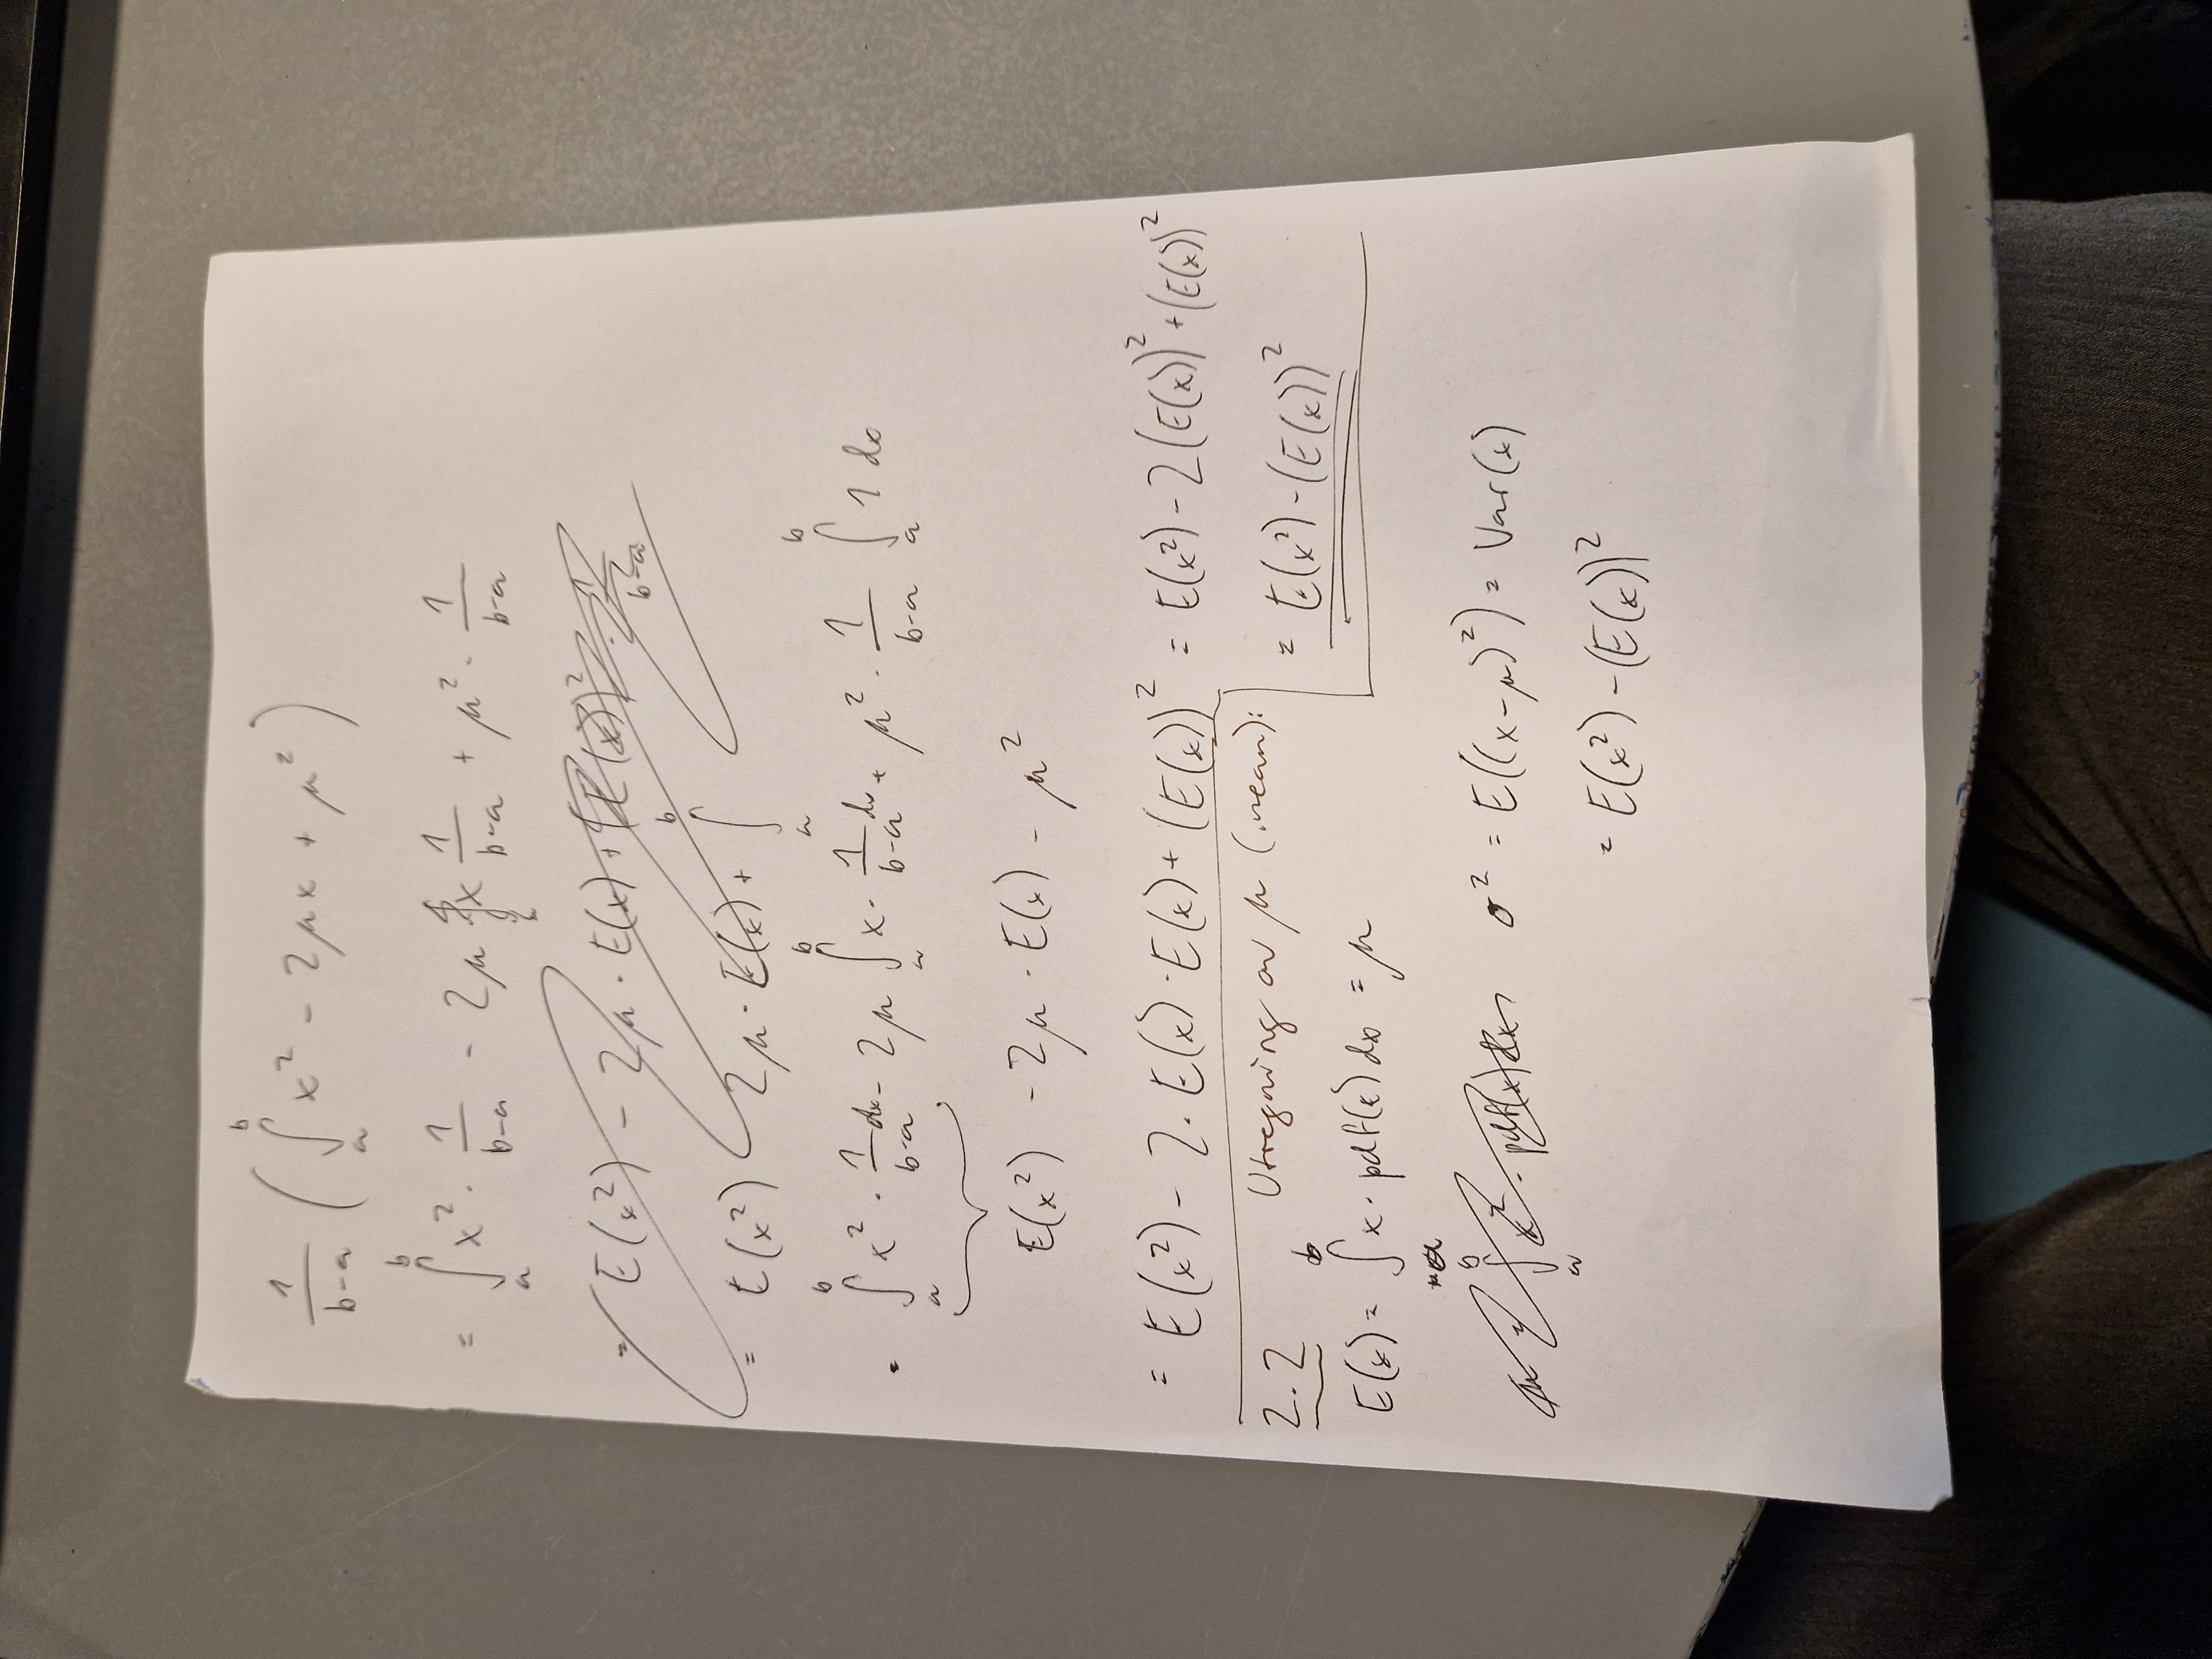 1/(b-a) ( ∫_a^b x² - 2μx + μ² )
= ∫_a^b x² · 1/(b-a) - 2μ x 1/(b-a) + μ² · 1/(b-a)
= E(x²) - 2μ · E(x) + (E(x))² · 1/(b-a)
= E(x²) 2μ · E(x) + ∫_a^b
= ∫_a^b x² · 1/(b-a) dx - 2μ ∫_a^b x · 1/(b-a) dx + μ² · 1/(b-a) ∫_a^b 1 dx
E(x²) - 2μ · E(x) - μ²
= E(x²) - 2 · E(x) · E(x) + (E(x))² = E(x²) - 2(E(x))² + (E(x))²
= E(x²) - (E(x))²
2.2 Utregning av μ (mean):
E(x) = ∫_a^b x · pdf(x) dx = μ
= ∫_a^b x² · pdf(x) dx
σ² = E((x-μ)²) = Var(x)
= E(x²) - (E(x))²